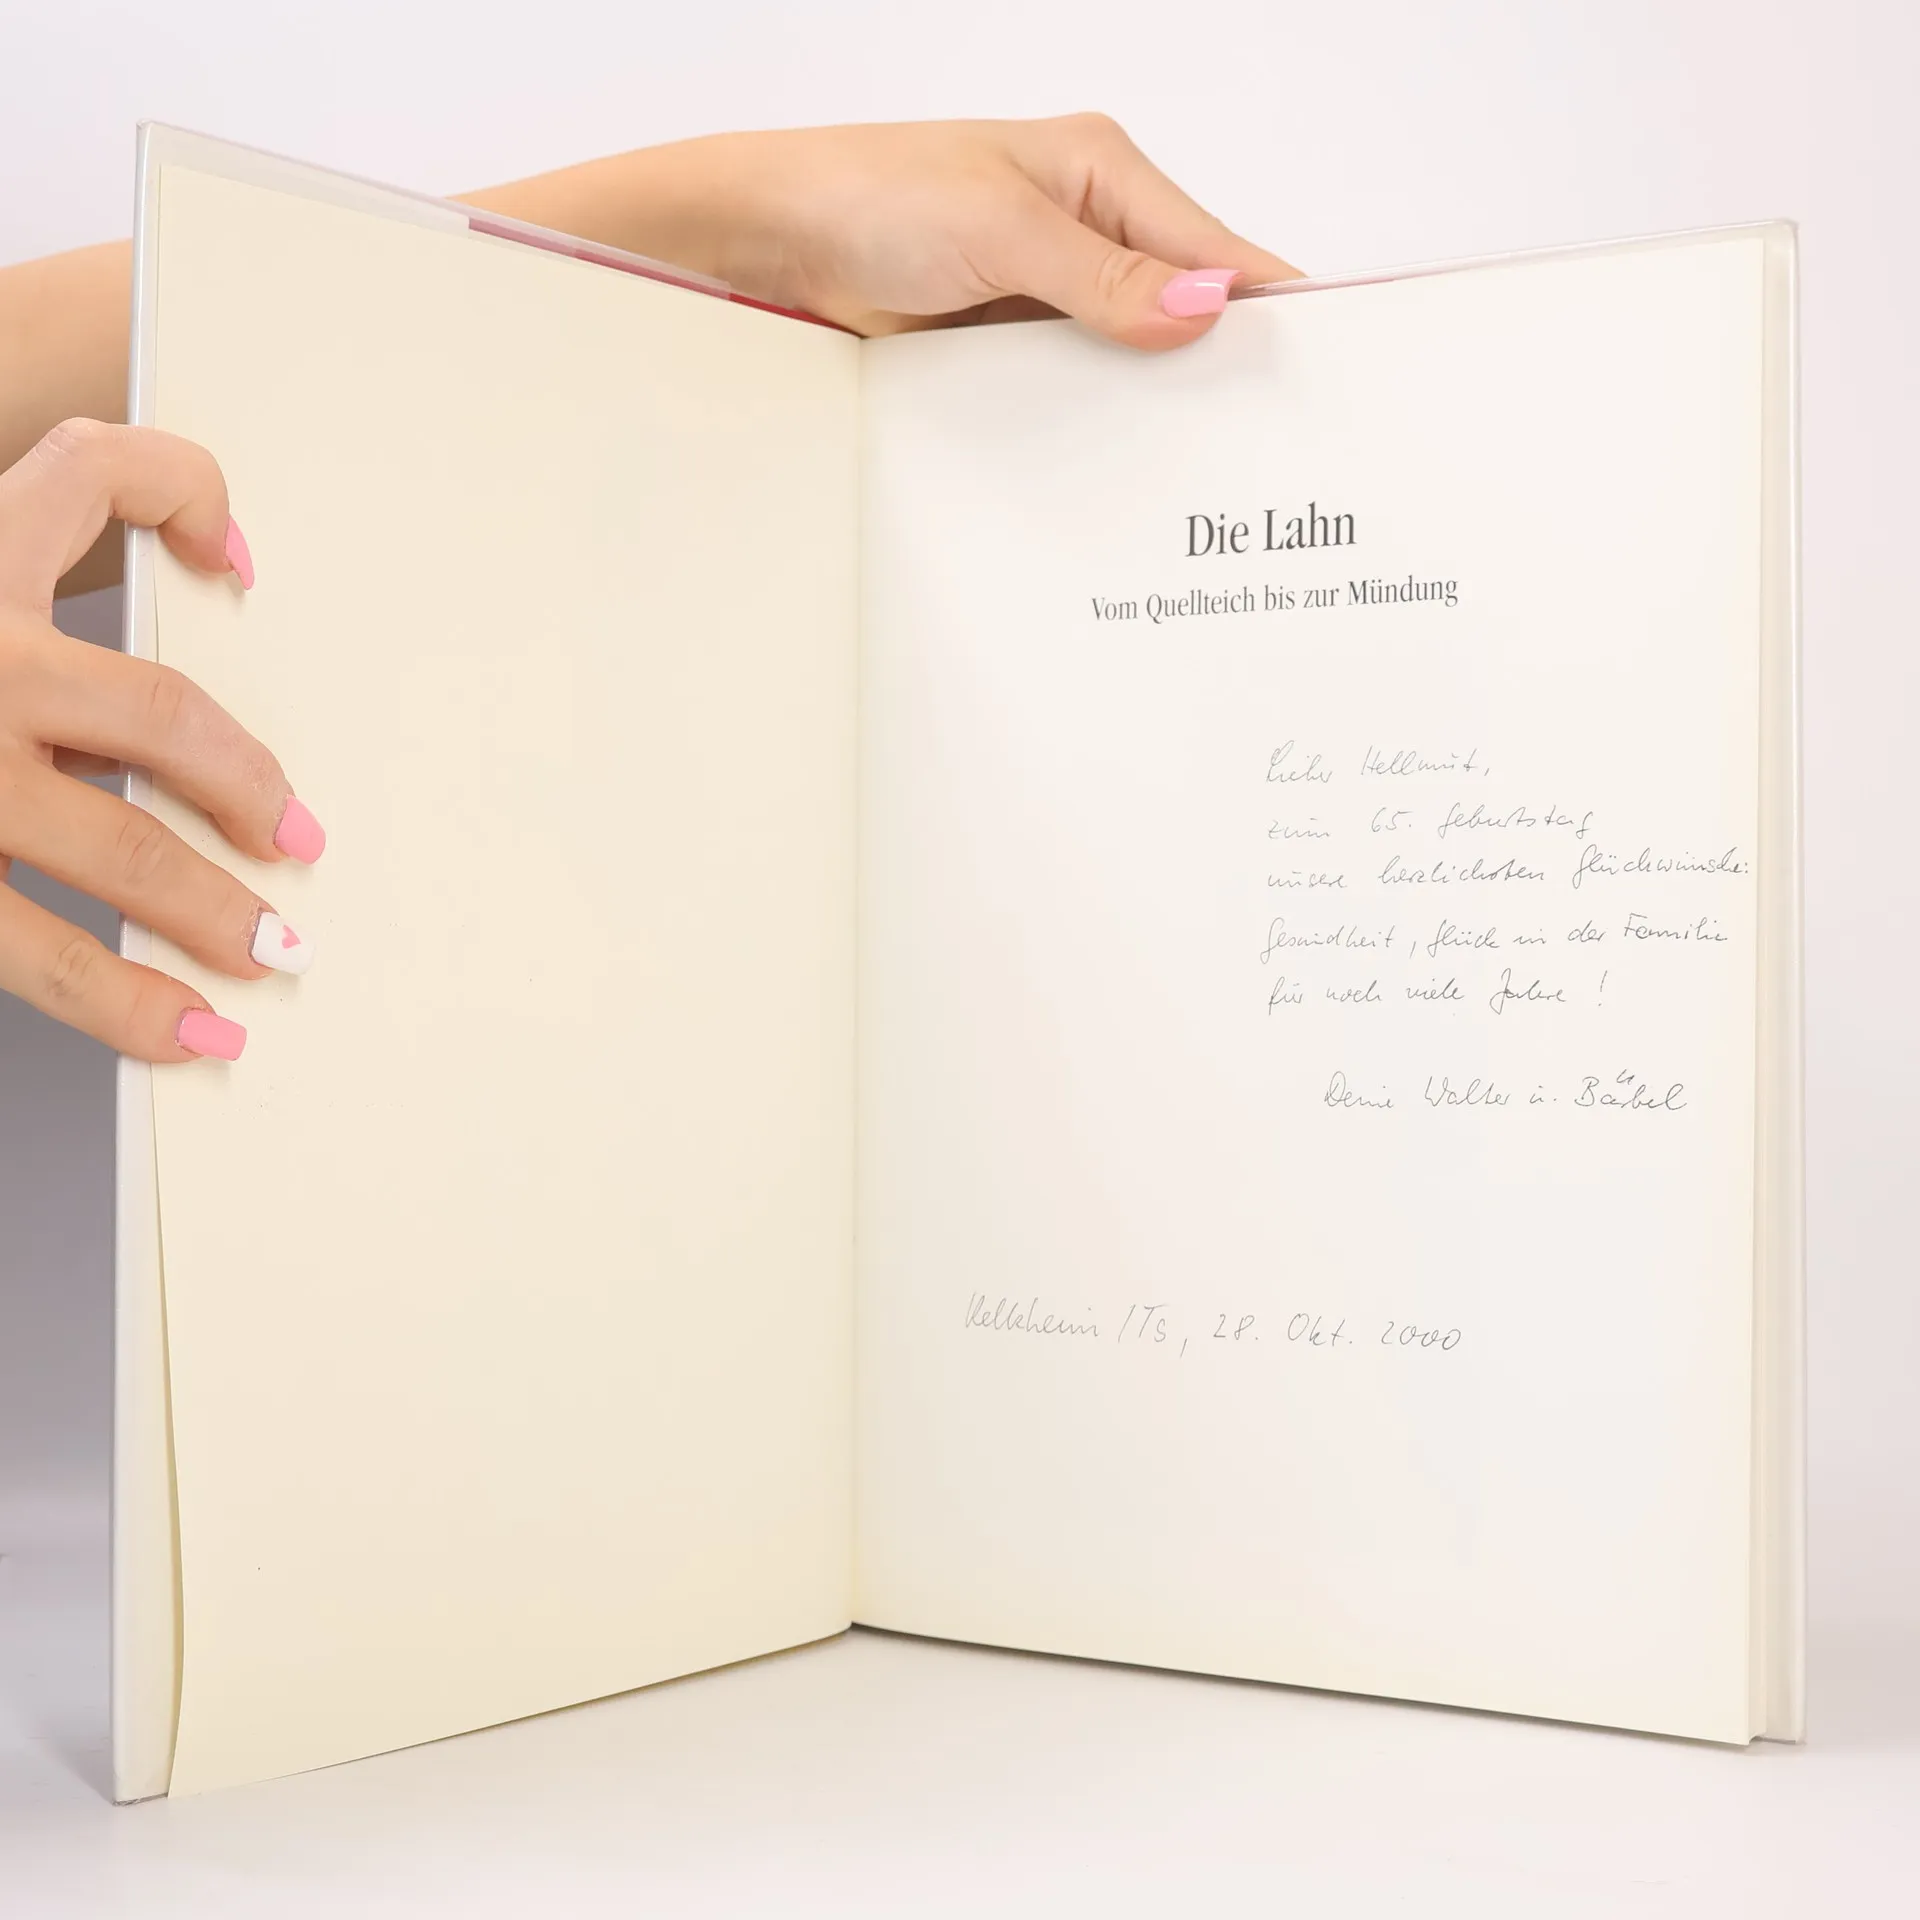 Die Lahn
Vom Quellteich bis zur Mündung
Lieber Hellmut,
zum 65. Geburtstag
unsere herzlichsten Glückwünsche:
Gesundheit, Glück in der Familie
für noch viele Jahre!
Deine Walter u. Bärbel
Kelkheim /Ts, 28. Okt. 2000